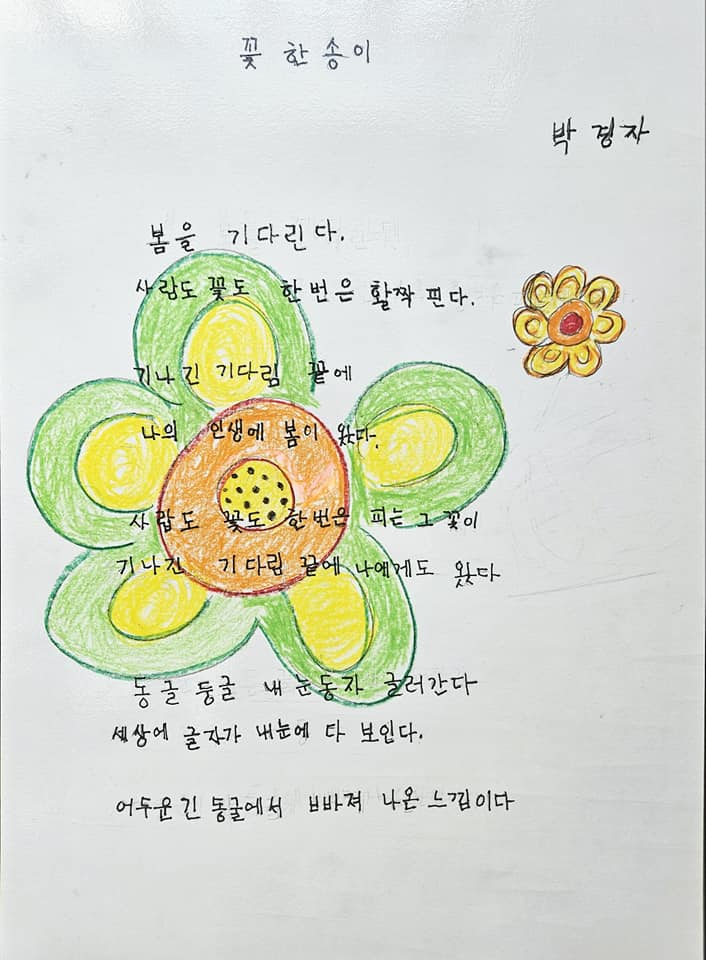 꽃 한 송이
박 경자
봄을 기다린다.
사람도 꽃도 한 번은 활짝 핀다.
기나긴 기다림 끝에
나의 인생에 봄이 왔다.
사람도 꽃도 한번은 피는 그 꽃이
기나긴 기다림 끝에 나에게도 왔다
동글 동글 내 눈동자 글러간다
세상에 글자가 내눈에 다 보인다.
어두운 긴 동굴에서 빠져 나온 느낌이다